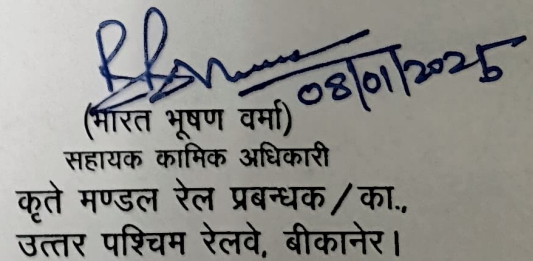 08/01/2025
(भारत भूषण वर्मा)
सहायक कामिक अधिकारी
कृते मण्डल रेल प्रबन्धक / का.,
उत्तर पश्चिम रेलवे, बीकानेर।